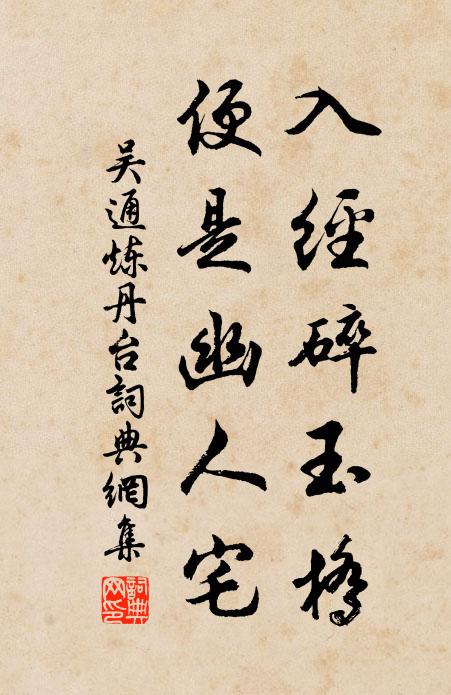 入經碎玉橋
便是幽人宅
吴通炼丹台詞典網集
詞典網印